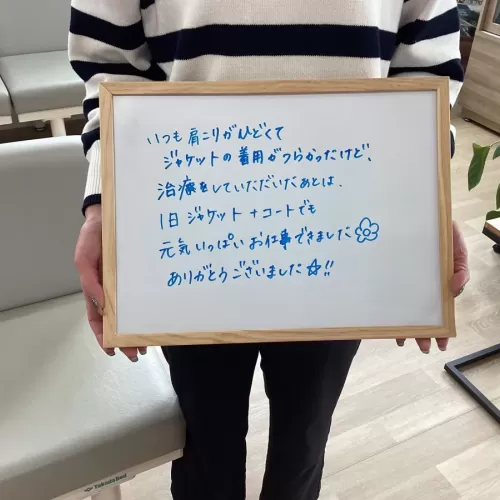 いつも肩こりがひどくて
ジャケットの着用がつらかったけど、
治療をしていただいたあとは、
1日ジャケット+コートでも
元気いっぱいお仕事できました
ありがとうございました☆!!
TakadaBed